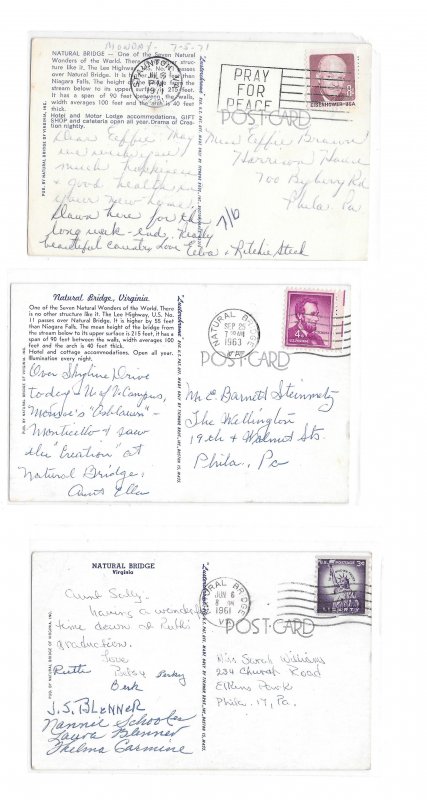 MONDAY 7-5-71
NATURAL BRIDGE — One of the Seven Natural
Wonders of the World. There is no other struc-
ture like it. The Lee Highway, U.S. No. 11
feet higher than
Niagara Falls.
stream below to its upper surface is 215 feet.
It has a span of 90 feet between the walls,
width averages 100 feet and the arch is 40 feet
thick.
Hotel and Motor Lodge accommodations, GIFT
SHOP and cafeteria open all year. Drama of Crea-
tion nightly.
Dear Effie May
we wish you
much happiness
& good health in
your new home.
Down here for the
long week-end. Really
beautiful country. Love Elva & Ritchie Steck
PUB. BY NATURAL BRIDGE OF VIRGINIA, INC.
STAUNTON
JUL 6
PM
1971
PRAY
FOR
PEACE
8c
EISENHOWER·USA
POST CARD
Miss Effie Brown
Harrison House
700 Byberry Rd
Phila. Pa
7/9
Natural Bridge, Virginia
One of the Seven Natural Wonders of the World. There
is no other structure like it. The Lee Highway, U.S. No.
11 passes over Natural Bridge. It is higher by 55 feet
than Niagara Falls. The mean height of the bridge from
the stream below to its upper surface is 215 feet, it has a
span of 90 feet between the walls, width averages 100
feet and the arch is 40 feet thick.
Hotel and cottage accommodations. Open all year.
Illumination every night.
Over Skyline Drive
today - U of V Campus,
Monroe's "Ashlawn" -
Monticello & saw
the "Creation" at
Natural Bridge.
Aunt Ella
PUB. BY NATURAL BRIDGE OF VIRGINIA, INC.
NATURAL BRIDGE
SEP 25
AM
1963
VA.
4c
POST CARD
Mr E. Barnett Steinmetz
The Wellington
19th & Walnut Sts.
Phila., Pa
NATURAL BRIDGE
Virginia
Aunt Sally.
Having a wonderful
time down at Ruth's
graduation.
Love
Ruthe Betsy Perky
Berk
J.S. BLENNER
Nannie Schooler
Laura Blenner
Thelma Carmine
PUB. BY NATURAL BRIDGE OF VIRGINIA, INC.
NATURAL BRIDGE
JUN 6
1961
VA
U.S. POSTAGE 3c
LIBERTY
POST CARD
Miss Sarah Williams
234 Church Road
Elkins Park
Phila. 17, Pa.